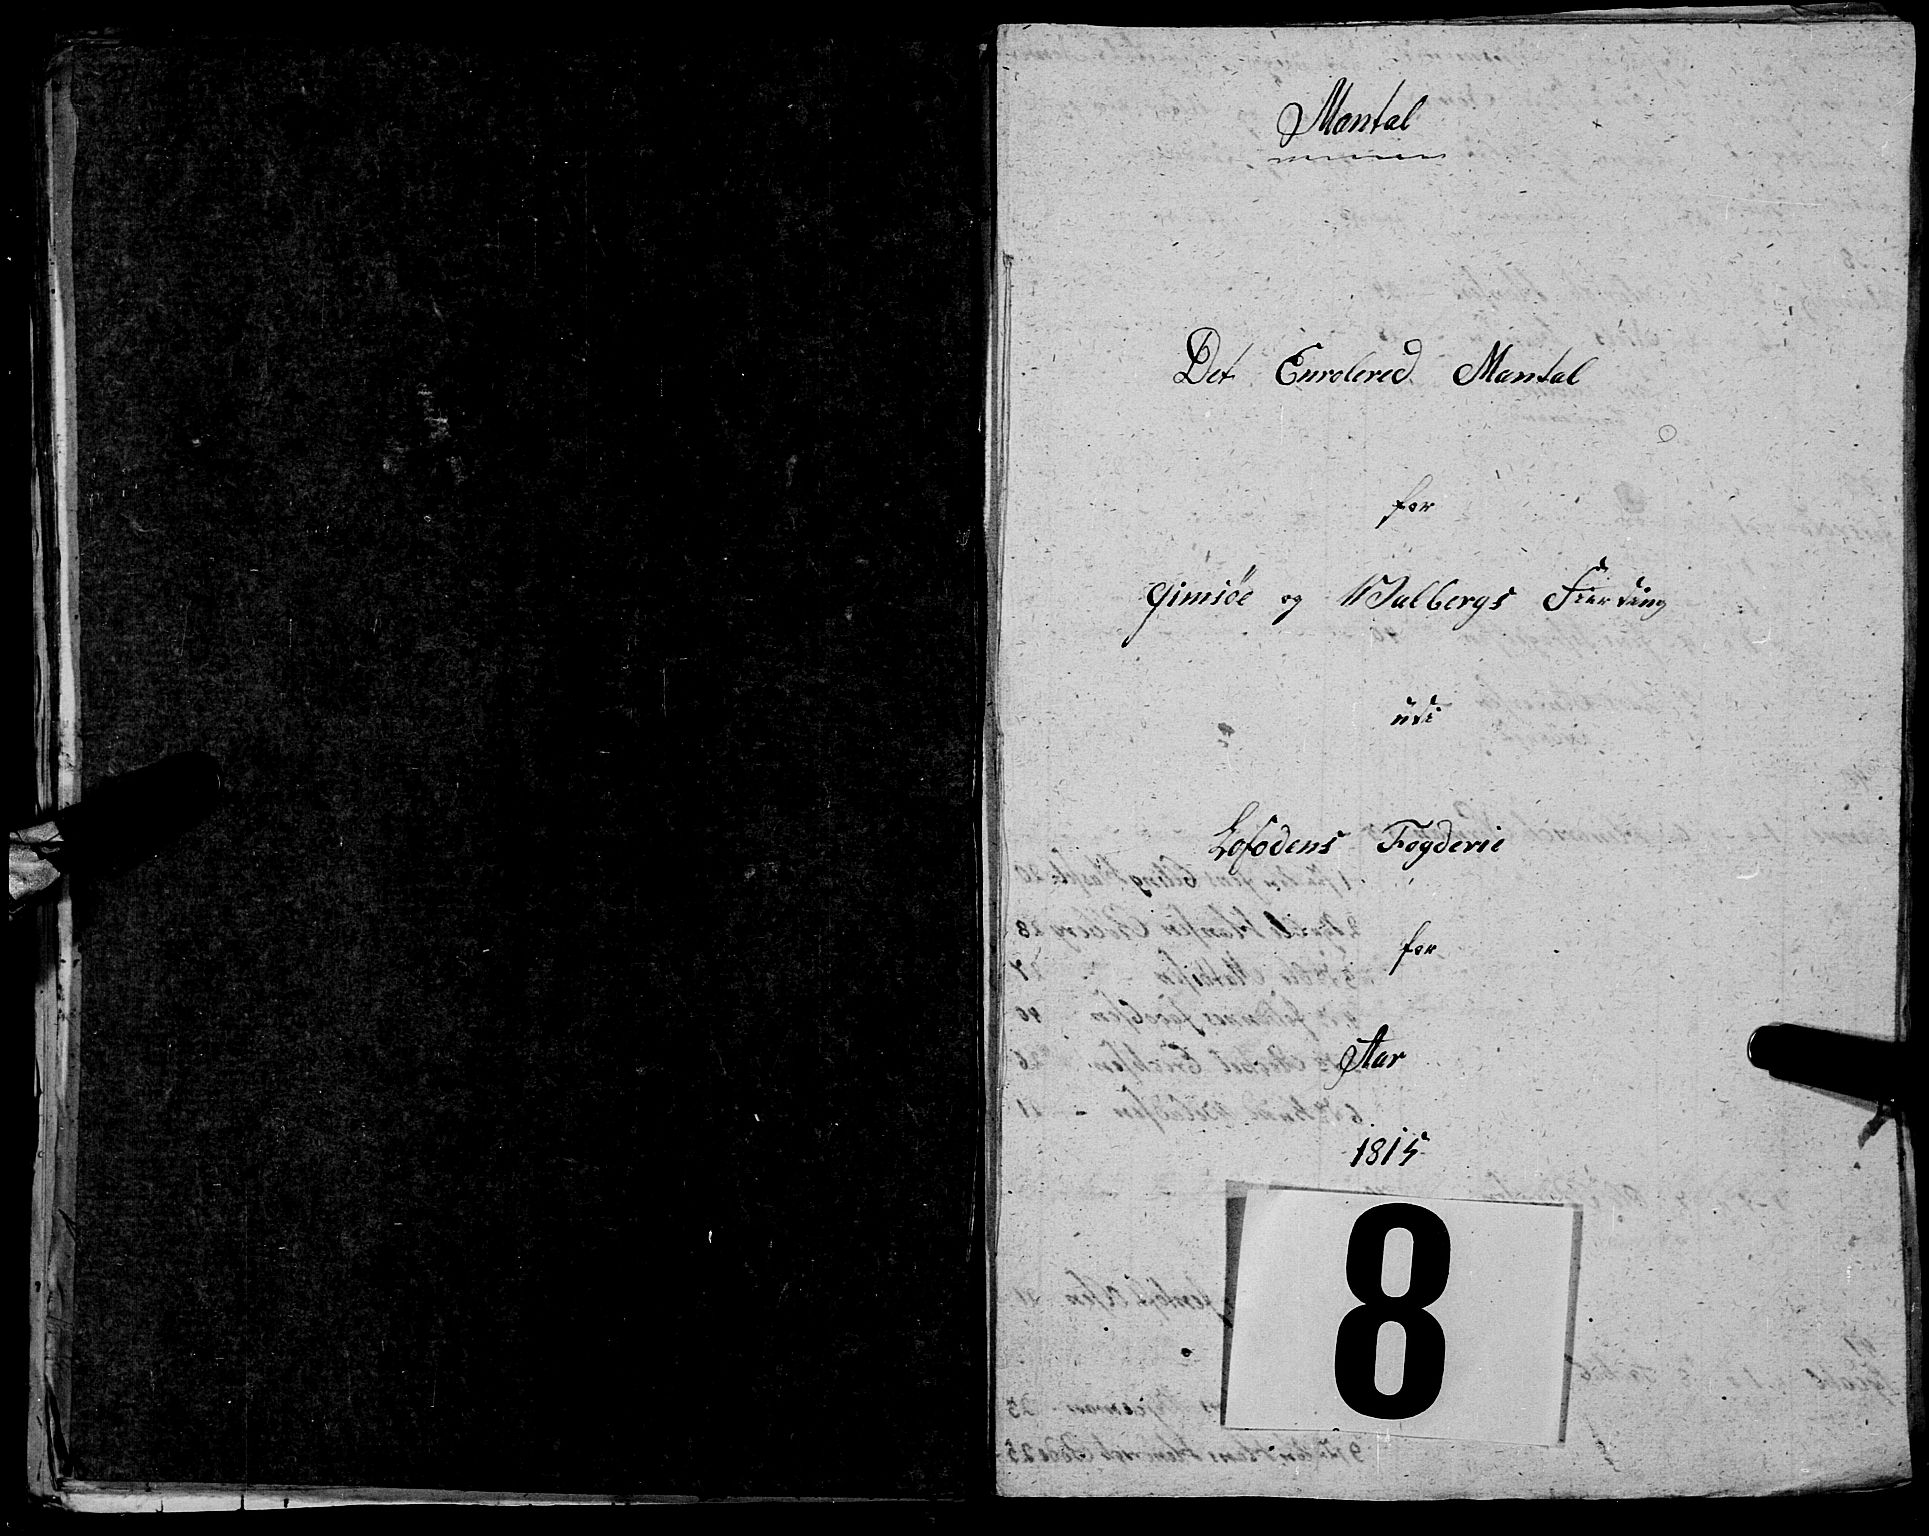 Mantal
Det Enrolered Mantal
for
Gimsöe og Walbergs Fierding
udi
Lofodens Fogderie
for
Aar
1815
8